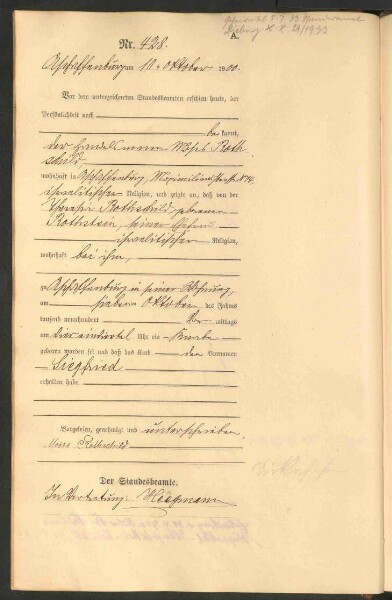 A.
Nr. 428.
Aschaffenburg am 10. Oktober 1900.
Vor dem unterzeichneten Standesbeamten erschien heute, der
Persönlichkeit nach
be kannt,
der Handelsmann Moses Roth
schild
wohnhaft in Aschaffenburg, Maximilianstraße №
israelitischer Religion, und zeigte an, daß von der
Therese Rothschild gebornen
Rothstein, seiner Ehefrau
israelitischer Religion,
wohnhaft bei ihm,
zu Aschaffenburg in seiner Wohnung
am siebenten Oktober des Jahres
tausend neunhundert Vor mittags
um vier einviertel Uhr ein Knabe
geboren worden sei und daß das Kind den Vornamen
Siegfried
erhalten habe
Vorgelesen, genehmigt und unterschrieben
Moses Rothschild
Der Standesbeamte.
In Vertretung: